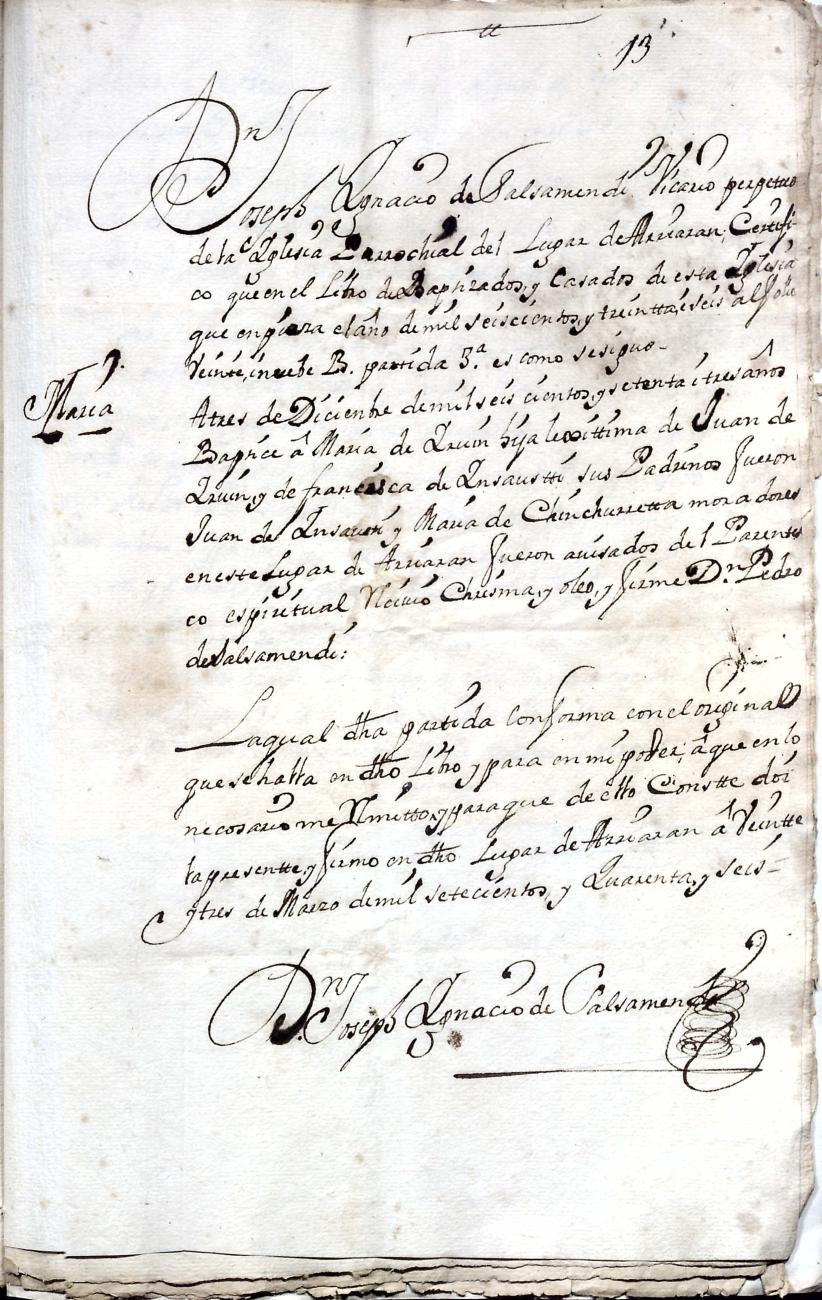 13
Dn Joseph Ygnacio de Salsamendi Vicario perpetuo
de la Yglesia Parrochial del Lugar de Arriaran, Certifi
co que en el Libro de Baptizados, y Casados de esta Yglesia
que empieza el año de mil seiscientos, y treintta, i seis al folio
veinte, i nuebe B. partida 3.ª es como se sigue-
Maria
A tres de Diciembre de mil seis cientos, y setenta i tres años
Baptice â Maria de Yrvin hija lexittima de Juan de
Yrvin, y de francisca de Ynsaustti sus Padrinos fueron
Juan de Ynsausti y Maria de Chinchurretta moradores
en este Lugar de Arriaran fueron avisados del Parentes
co espiritual Recivio Chrisma, y óleo, y firme Dn. Pedro
de Salsamendi:
La qual dha partida Conforma con el original
que se halla en dho Libro y para en mi poder, â que en lo
necesario me Rmitto, y para que de ello Constte doi
la presentte, y firmo en dho Lugar de Arriaran â Veintte
y tres de Marzo de mil setecientos, y Quarenta, y seis-
Dn. Joseph Ygnacio de Salsamendi